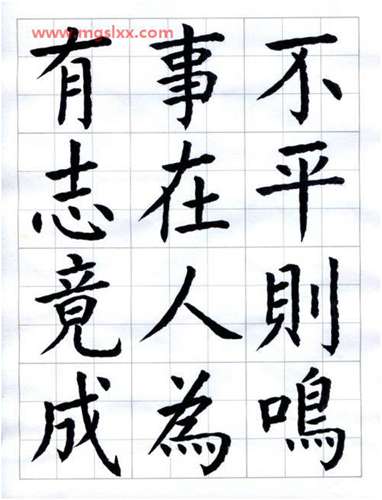 www.mgslxx.com
不平則鳴
事在人為
有志竟成